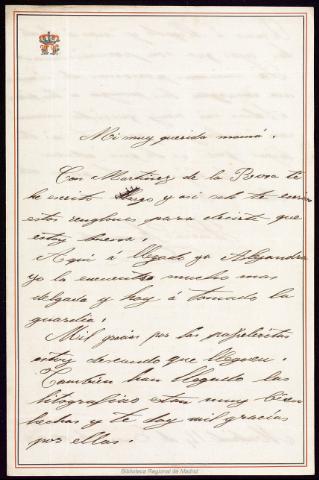 Mi muy querida mamá.
Con Martinez de la Rosa te
he escrito largo y asi solo te envio
estos renglones para decirte que
estoy buena.
Aqui á llegado ya Alejandro
yo le encuentro mucho mas
delgado y hoy á tomado la
guardia.
Mil gracias por las papeletas
estoy deseando que lleguen.
Tambien han llegado las
litografias estan muy bien
hechas y te doy mil gracias
por ellas.
Biblioteca Regional de Madrid